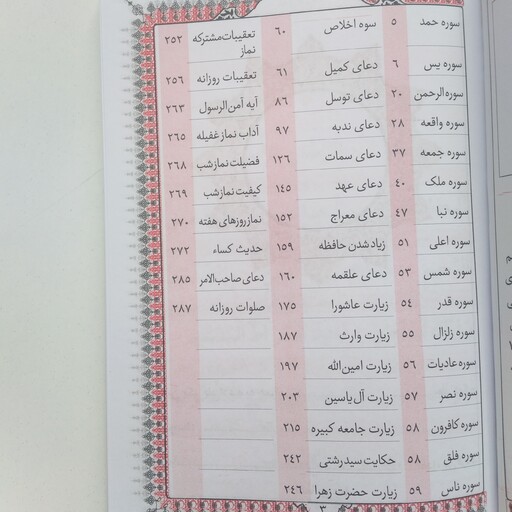 سوره حمد ۵
سوره یس ۶
سوره الرحمن ۲۰
سوره واقعه ۲۸
سوره جمعه ۳۷
سوره ملک ۴۰
سوره نبا ۴۷
سوره اعلی ۵۱
سوره شمس ۵۳
سوره قدر ۵۴
سوره زلزال ۵۵
سوره عادیات ۵۶
سوره نصر ۵۷
سوره کافرون ۵۸
سوره فلق ۵۸
سوره ناس ۵۹
سوه اخلاص ۶۰
دعای کمیل ۶۱
دعای توسل ۸۶
دعای ندبه ۹۷
دعای سمات ۱۲۶
دعای عهد ۱۴۵
دعای معراج ۱۵۲
زیاد شدن حافظه ۱۵۹
دعای علقمه ۱۶۰
زیارت عاشورا ۱۷۵
زیارت وارث ۱۸۷
زیارت امین الله ۱۹۷
زیارت آل یاسین ۲۰۳
زیارت جامعه کبیره ۲۱۵
حکایت سید رشتی ۲۴۲
زیارت حضرت زهرا ۲۴۶
تعقیبات مشترکه نماز ۲۵۲
تعقیبات روزانه ۲۵۶
آیه آمن الرسول ۲۶۳
آداب نماز غفیله ۲۶۵
فضیلت نماز شب ۲۶۸
کیفیت نماز شب ۲۶۹
نماز روزهای هفته ۲۷۰
حدیث کساء ۲۷۲
دعای صاحب الامر ۲۸۵
صلوات روزانه ۲۸۷
۳